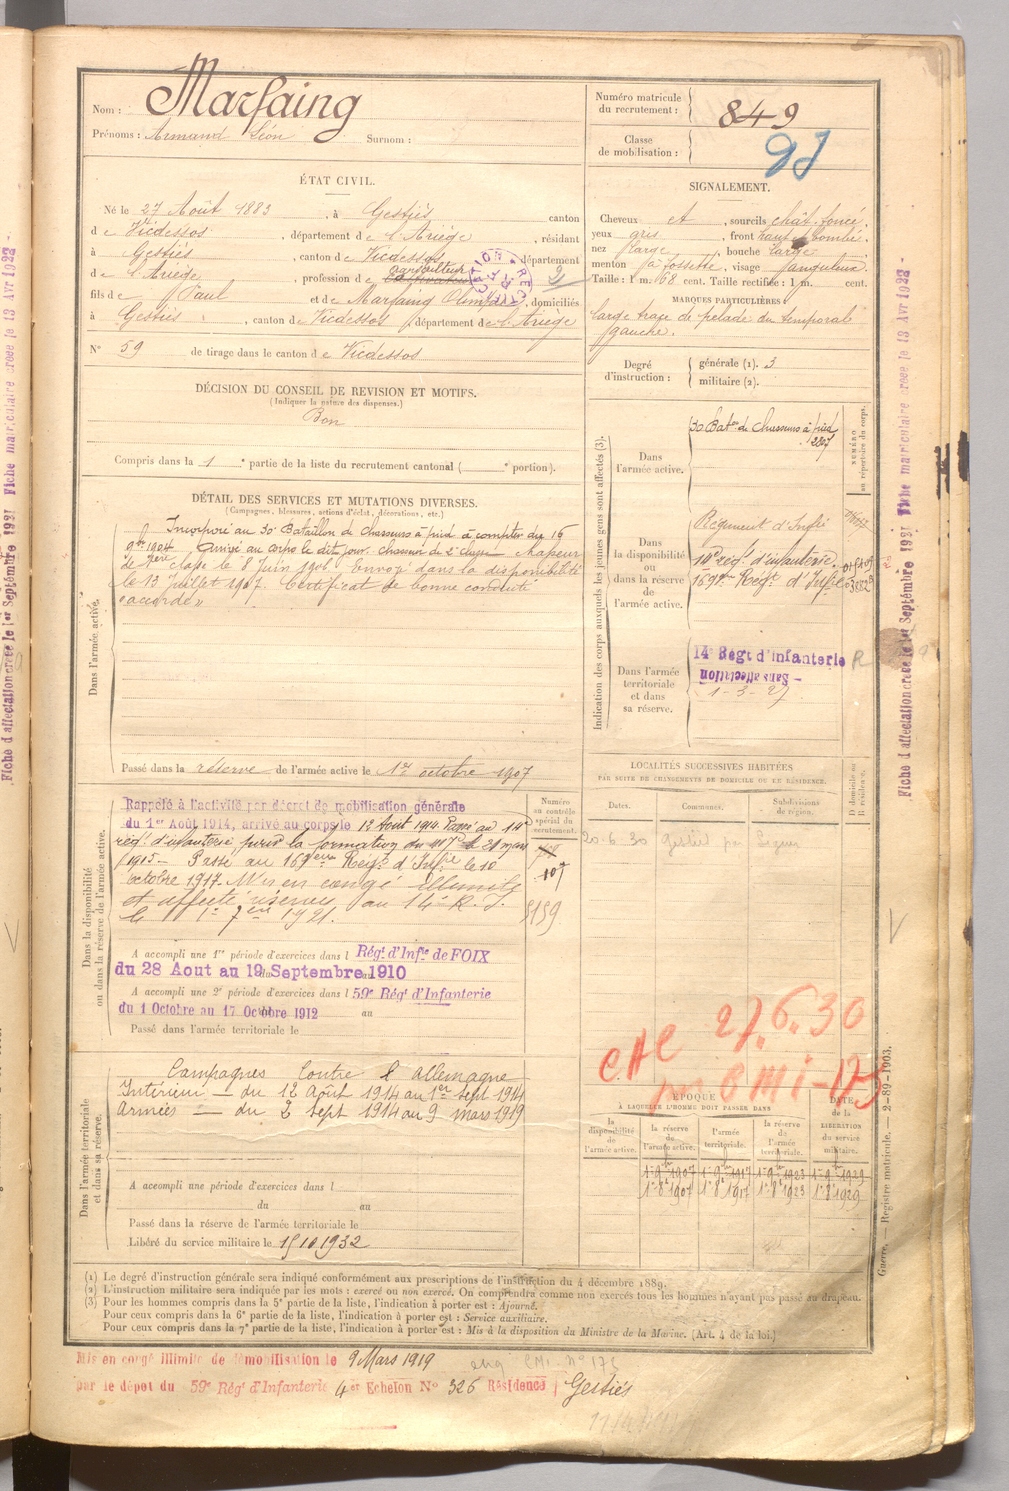 Nom : Marfaing
Prénoms : Armand Léon Surnom :
Numéro matricule
du recrutement : 849
Classe
de mobilisation :
ÉTAT CIVIL.
Né le 27 Août 1883, à Gestiès canton
de Vicdessos, département de l'Ariège, résidant
à Gestiès, canton de Vicdessos département
de l'Ariège, profession de cultivateur
fils de Paul et de Marfaing, domiciliés
à Gestiès, canton de Vicdessos, département de l'Ariège
N° 59 de tirage dans le canton de Vicdessos
SIGNALEMENT.
Cheveux ct, sourcils chât. foncé
yeux gris, front haut et bombé,
nez large, bouche large
menton à fossette, visage sanguleux
Taille : 1 m. 68 cent. Taille rectifiée : 1 m. cent.
MARQUES PARTICULIÈRES
large trace de pelade du temporal
gauche.
Degré
d'instruction : générale (1). 3
militaire (2).
DÉCISION DU CONSEIL DE REVISION ET MOTIFS.
(Indiquer la nature des dispenses.)
Bon
Compris dans la 1e partie de la liste du recrutement cantonal ( e portion).
DÉTAIL DES SERVICES ET MUTATIONS DIVERSES.
(Campagnes, blessures, actions d'éclat, décorations, etc.)
Dans l'armée active.
Incorporé au 30e Bataillon de Chasseurs à pied à compter du 16
9bre 1904, Arrivé au corps le dit jour. Chasseur de 2e classe chasseur
de 1ère classe le 8 Juin 1906 Envoyé dans la disponibilité
le 13 Juillet 1907. Certificat de bonne conduite
"accordé"
Passé dans la réserve de l'armée active le 1er octobre 1907
Indication des corps auxquels les jeunes gens sont affectés (3).
NUMÉRO
au répertoire du corps.
Dans
l'armée active.
30 Baton de Chasseurs à pied
Dans
la disponibilité
ou
dans la réserve
de
l'armée active.
Régiment d'Infie
14e rég. d'infanterie.
169ème Régt d'Infie
Dans l'armée
territoriale
et dans
sa réserve.
14e Régt d'Infanterie
- Sans affectation
1-3-27
LOCALITÉS SUCCESSIVES HABITÉES
PAR SUITE DE CHANGEMENTS DE DOMICILE OU DE RÉSIDENCE.
Dates. Communes. Subdivisions
de région.
D domicile ou
R résidence.
20-6-30 Gestiès par
Dans la disponibilité
ou dans la réserve de l'armée active.
Numéro
au contrôle
spécial du
recrutement.
Rappelé à l'activité par décret de mobilisation générale
du 1er Août 1914, arrivé au corps le 12 Août 1914. Passé au 14e
rég. d'infanterie pour la formation du le 21 mars
1915 - Passé au 169ème Régt d'Infie le 10
octobre 1917. Mis en congé illimité
et affecté réserves au 14e R.I.
le 1921.
107
5159
A accompli une 1re période d'exercices dans l Régt d'Infie de FOIX
du 28 Aout au 19 Septembre 1910
A accompli une 2e période d'exercices dans l 59e Régt d'Infanterie
du 1 Octobre au 17 Octobre 1912 au
Passé dans l'armée territoriale le
27.6.30
Dans l'armée territoriale
et dans sa réserve.
Campagnes Contre l'allemagne
Intérieur - du 12 Août 1914 au 1er sept 1914
Armées - du 2 sept 1914 au 9 mars 1919
A accompli une période d'exercices dans l
du au
Passé dans la réserve de l'armée territoriale le
Libéré du service militaire le 15 10 1932
ÉPOQUE
À LAQUELLE L'HOMME DOIT PASSER DANS
DATE
de la
LIBÉRATION
du service
militaire.
la
disponibilité
de
l'armée active.
la réserve
de
l'armée active.
l'armée
territoriale.
la réserve
de
l'armée
territoriale.
1er 9bre 1907 1er 9bre 1917 1er 9bre 1923 1er 9bre 1929
1er 8bre 1907 1er 8bre 1917 1er 8bre 1923 1er 8bre 1929
(1) Le degré d'instruction générale sera indiqué conformément aux prescriptions de l'instruction du 4 décembre 1889.
(2) L'instruction militaire sera indiquée par les mots : exercé ou non exercé. On comprendra comme non exercés tous les hommes n'ayant pas passé au drapeau.
(3) Pour les hommes compris dans la 5e partie de la liste, l'indication à porter est : Ajourné.
Pour ceux compris dans la 6e partie de la liste, l'indication à porter est : Service auxiliaire.
Pour ceux compris dans la 7e partie de la liste, l'indication à porter est : Mis à la disposition du Ministre de la Marine. (Art. 4 de la loi.)
Mis en congé illimité de démobilisation le 9 Mars 1919
par le dépot du 59e Rég d'Infanterie 4er Echelon N° 326 Résidence Gestiès
Guerre. — Registre matricule. — 2-89-1903.
Fiche d'affectation créée le 1er Septembre 1921 Fiche matriculaire créée le 13 Avr 1922 -
Fiche d'affectation créée le 1er Septembre 1921 Fiche matriculaire créée le 13 Avr 1922 -